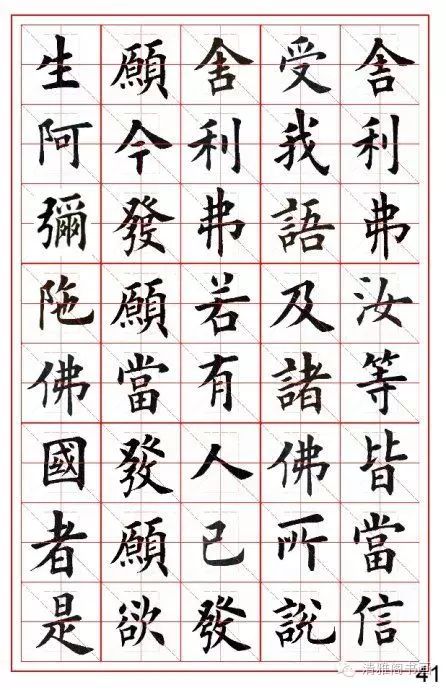 舎利弗汝等皆當信
受我語及諸佛所說
舎利弗若有人已發
願今發願當發願欲
生阿彌陀佛國者是
清雅阁书画
41